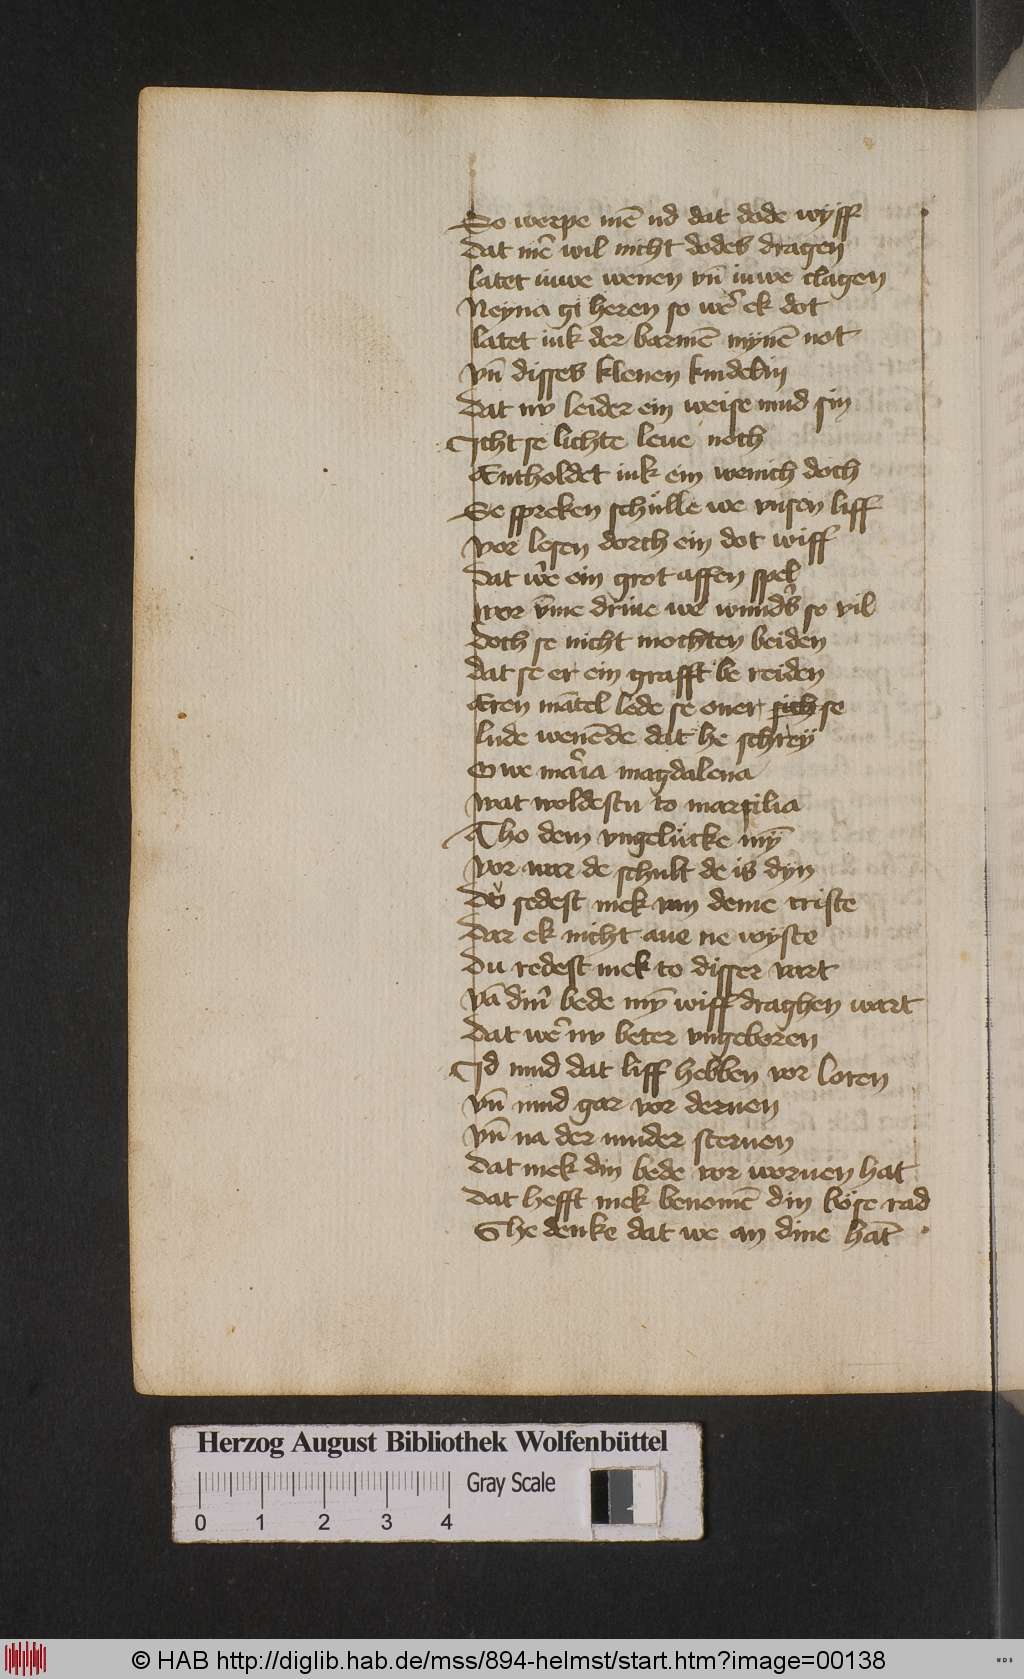 So werpe mē ud dat dode wyff
dat mē wil nicht dodes dragen
latet iuwe wenen vn̄ iuwe clagen
Neyna gi heren so wer̄ ek dot
latet iuk der barmē mynē not
vn̄ disses klenen kindelin
dat nv leider ein weise mud sin
Icht se lichte leue noch
Entholdet iuk ein wenich doch
Se spreken schulle we vnsen liff
vor lesen dorch ein dot wiff
dat we͛ ein grot affen spel
wor v̄me driue we wunders so vil
doch se nicht mochten beiden
dat se er ein grafft be reiden
Eren mātel lede se ouer sich se
lude wenēde dat he schrey
O we maria magdalena
wat woldestu to marsilia
Tho dem vngelucke my̅
vor war de schult de is dyn
du sedest mek van deme criste
dar ek nicht aue ne wyste
du redest mek to disser vart
vā diner bede my̅ wiff draghen wart
dat wer̄ nv beter vngeboren
Id mud dat liff hebben vor loren
vn̄ mud gar vor deruen
vn̄ na der muder steruen
dat mek din bede vor woruen hat
dat hefft mek benomē din bose rad
Ghe denke dat we an dine hāt
Herzog August Bibliothek Wolfenbüttel
0 1 2 3 4
Gray Scale
© HAB http://diglib.hab.de/mss/894-helmst/start.htm?image=00138